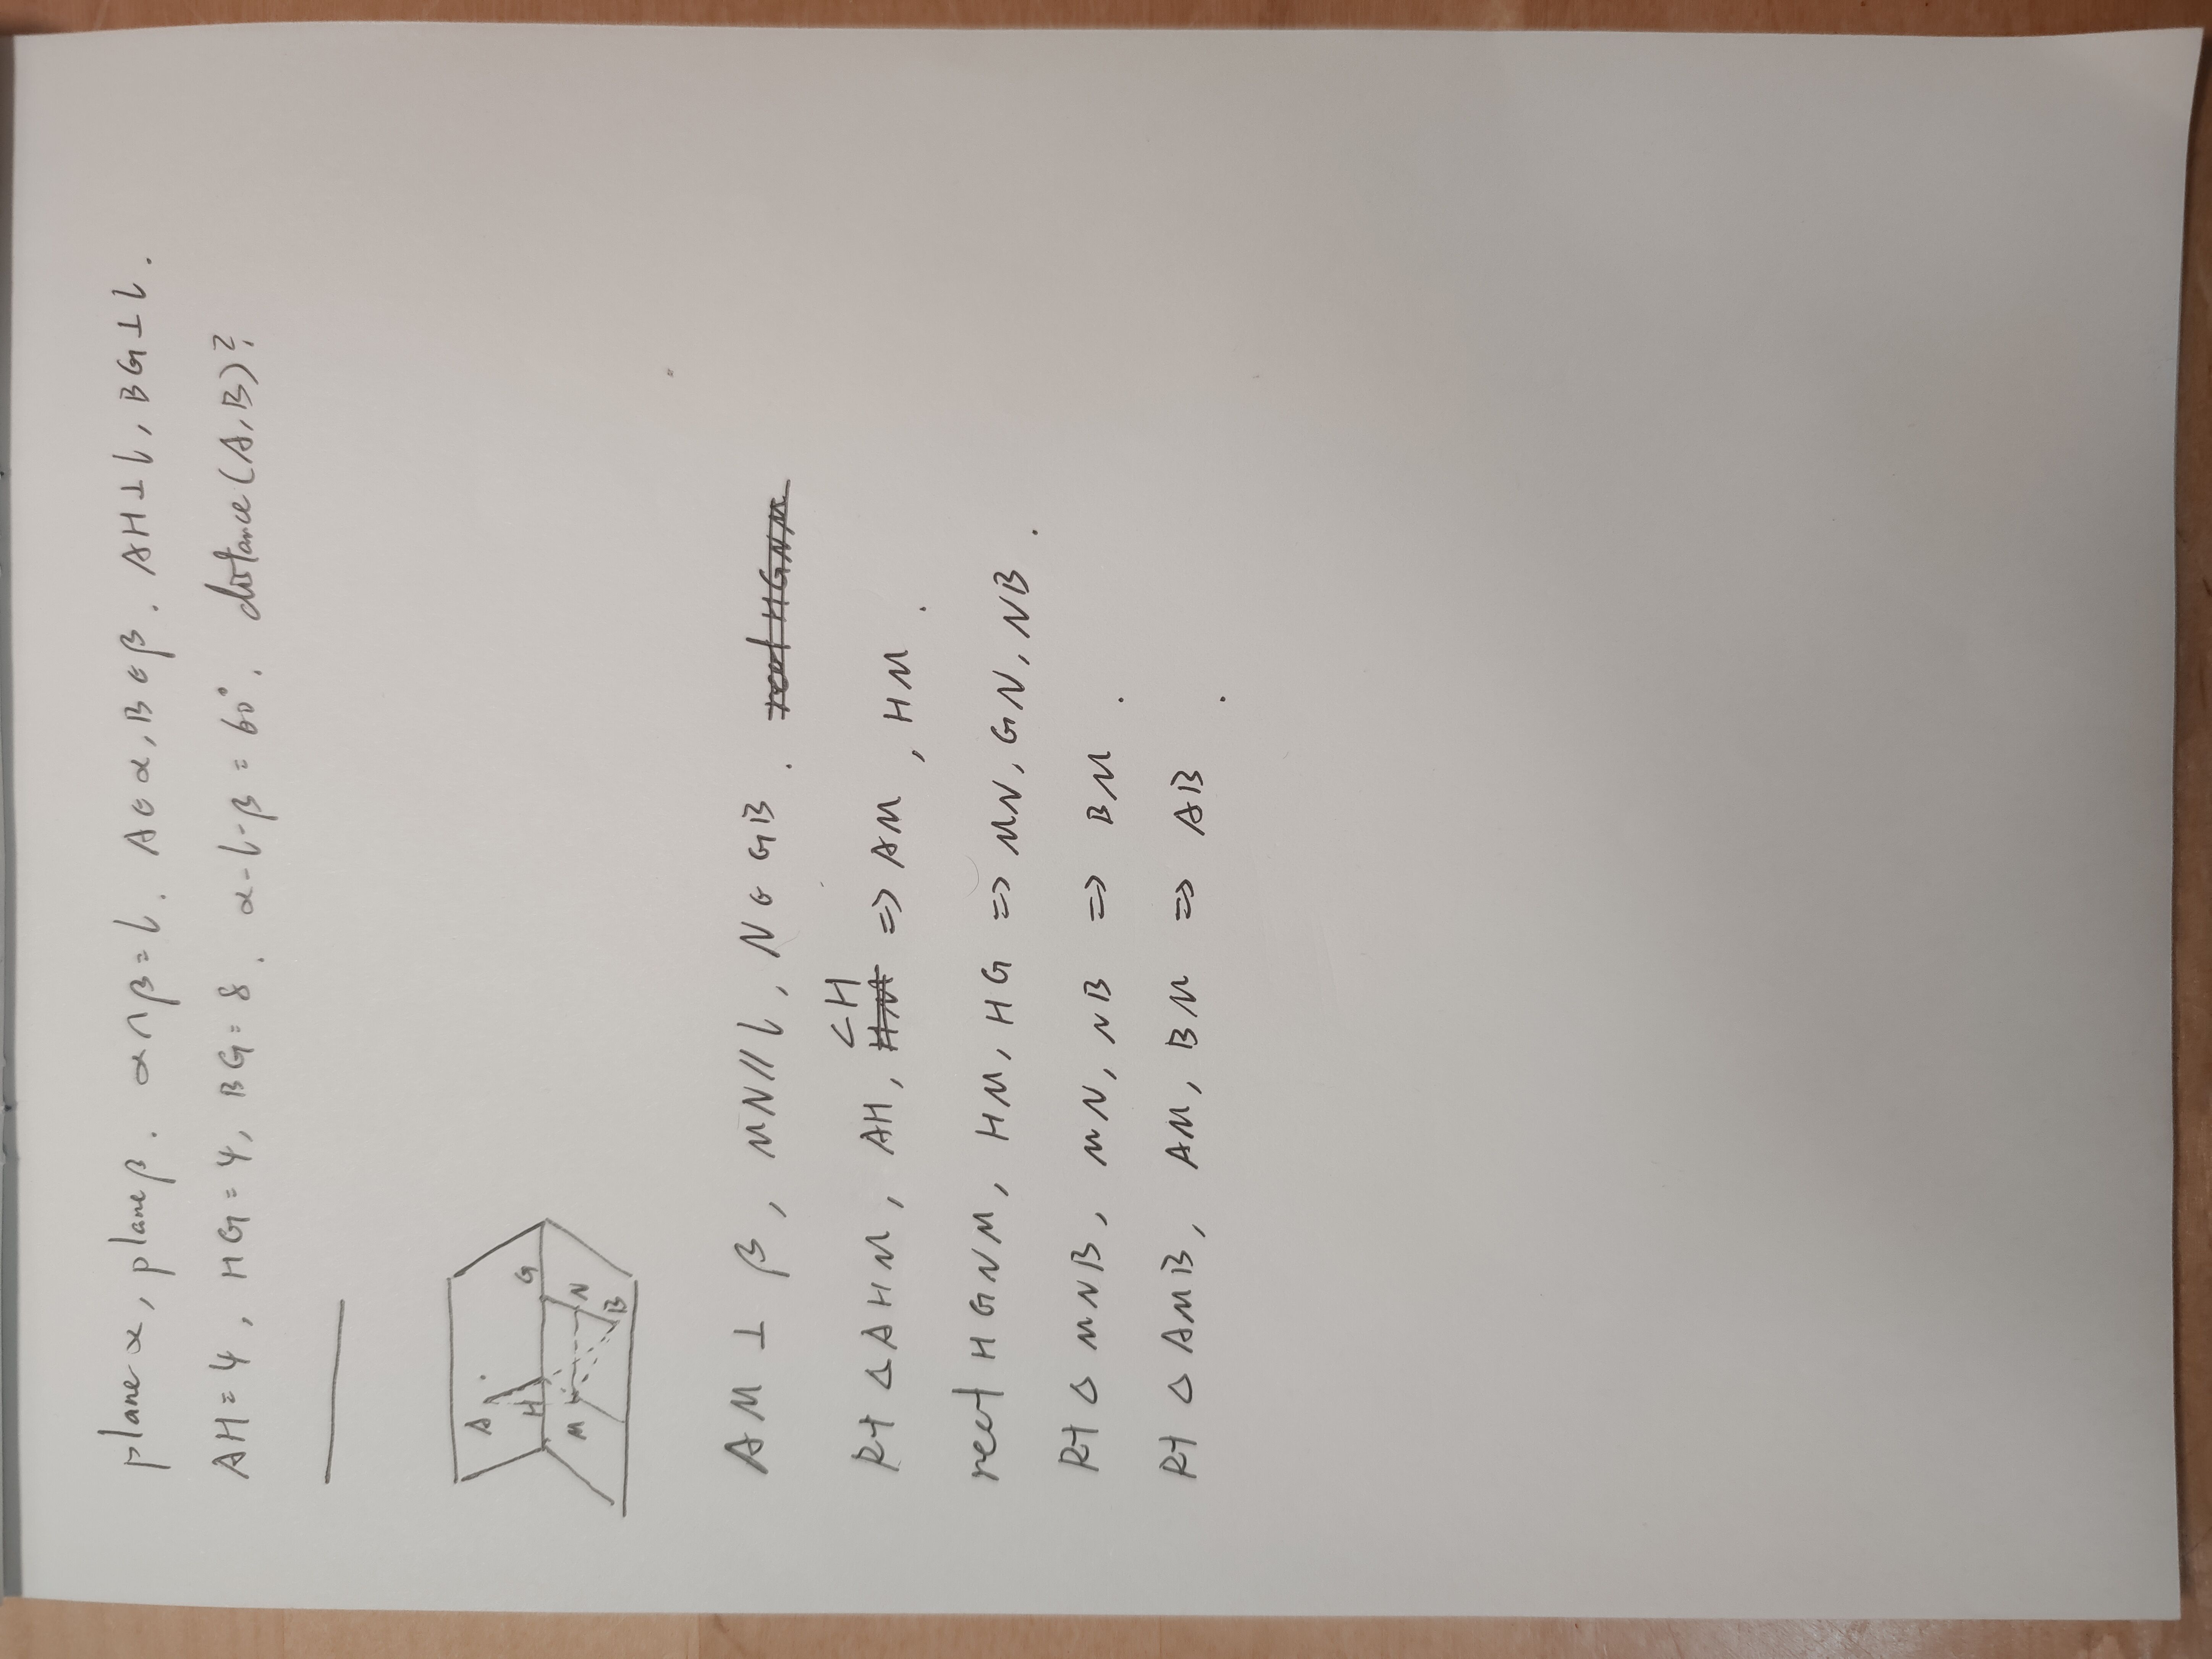 plane α, plane β. α∩β=l. A∈α, B∈β. AH⊥l, BG⊥l.
AH=4, HG=4, BG=8. α-l-β=60°. distance(A,B)?
A
H G
M N
B
AM ⊥ β, MN//l, N∈GB. rect HGNM
∠H
Rt △AHM, AH, HM => AM, HM.
rect HGNM, HM, HG => MN, GN, NB.
Rt △ MNB, MN, NB => BM.
Rt △ AMB, AM, BM => AB.